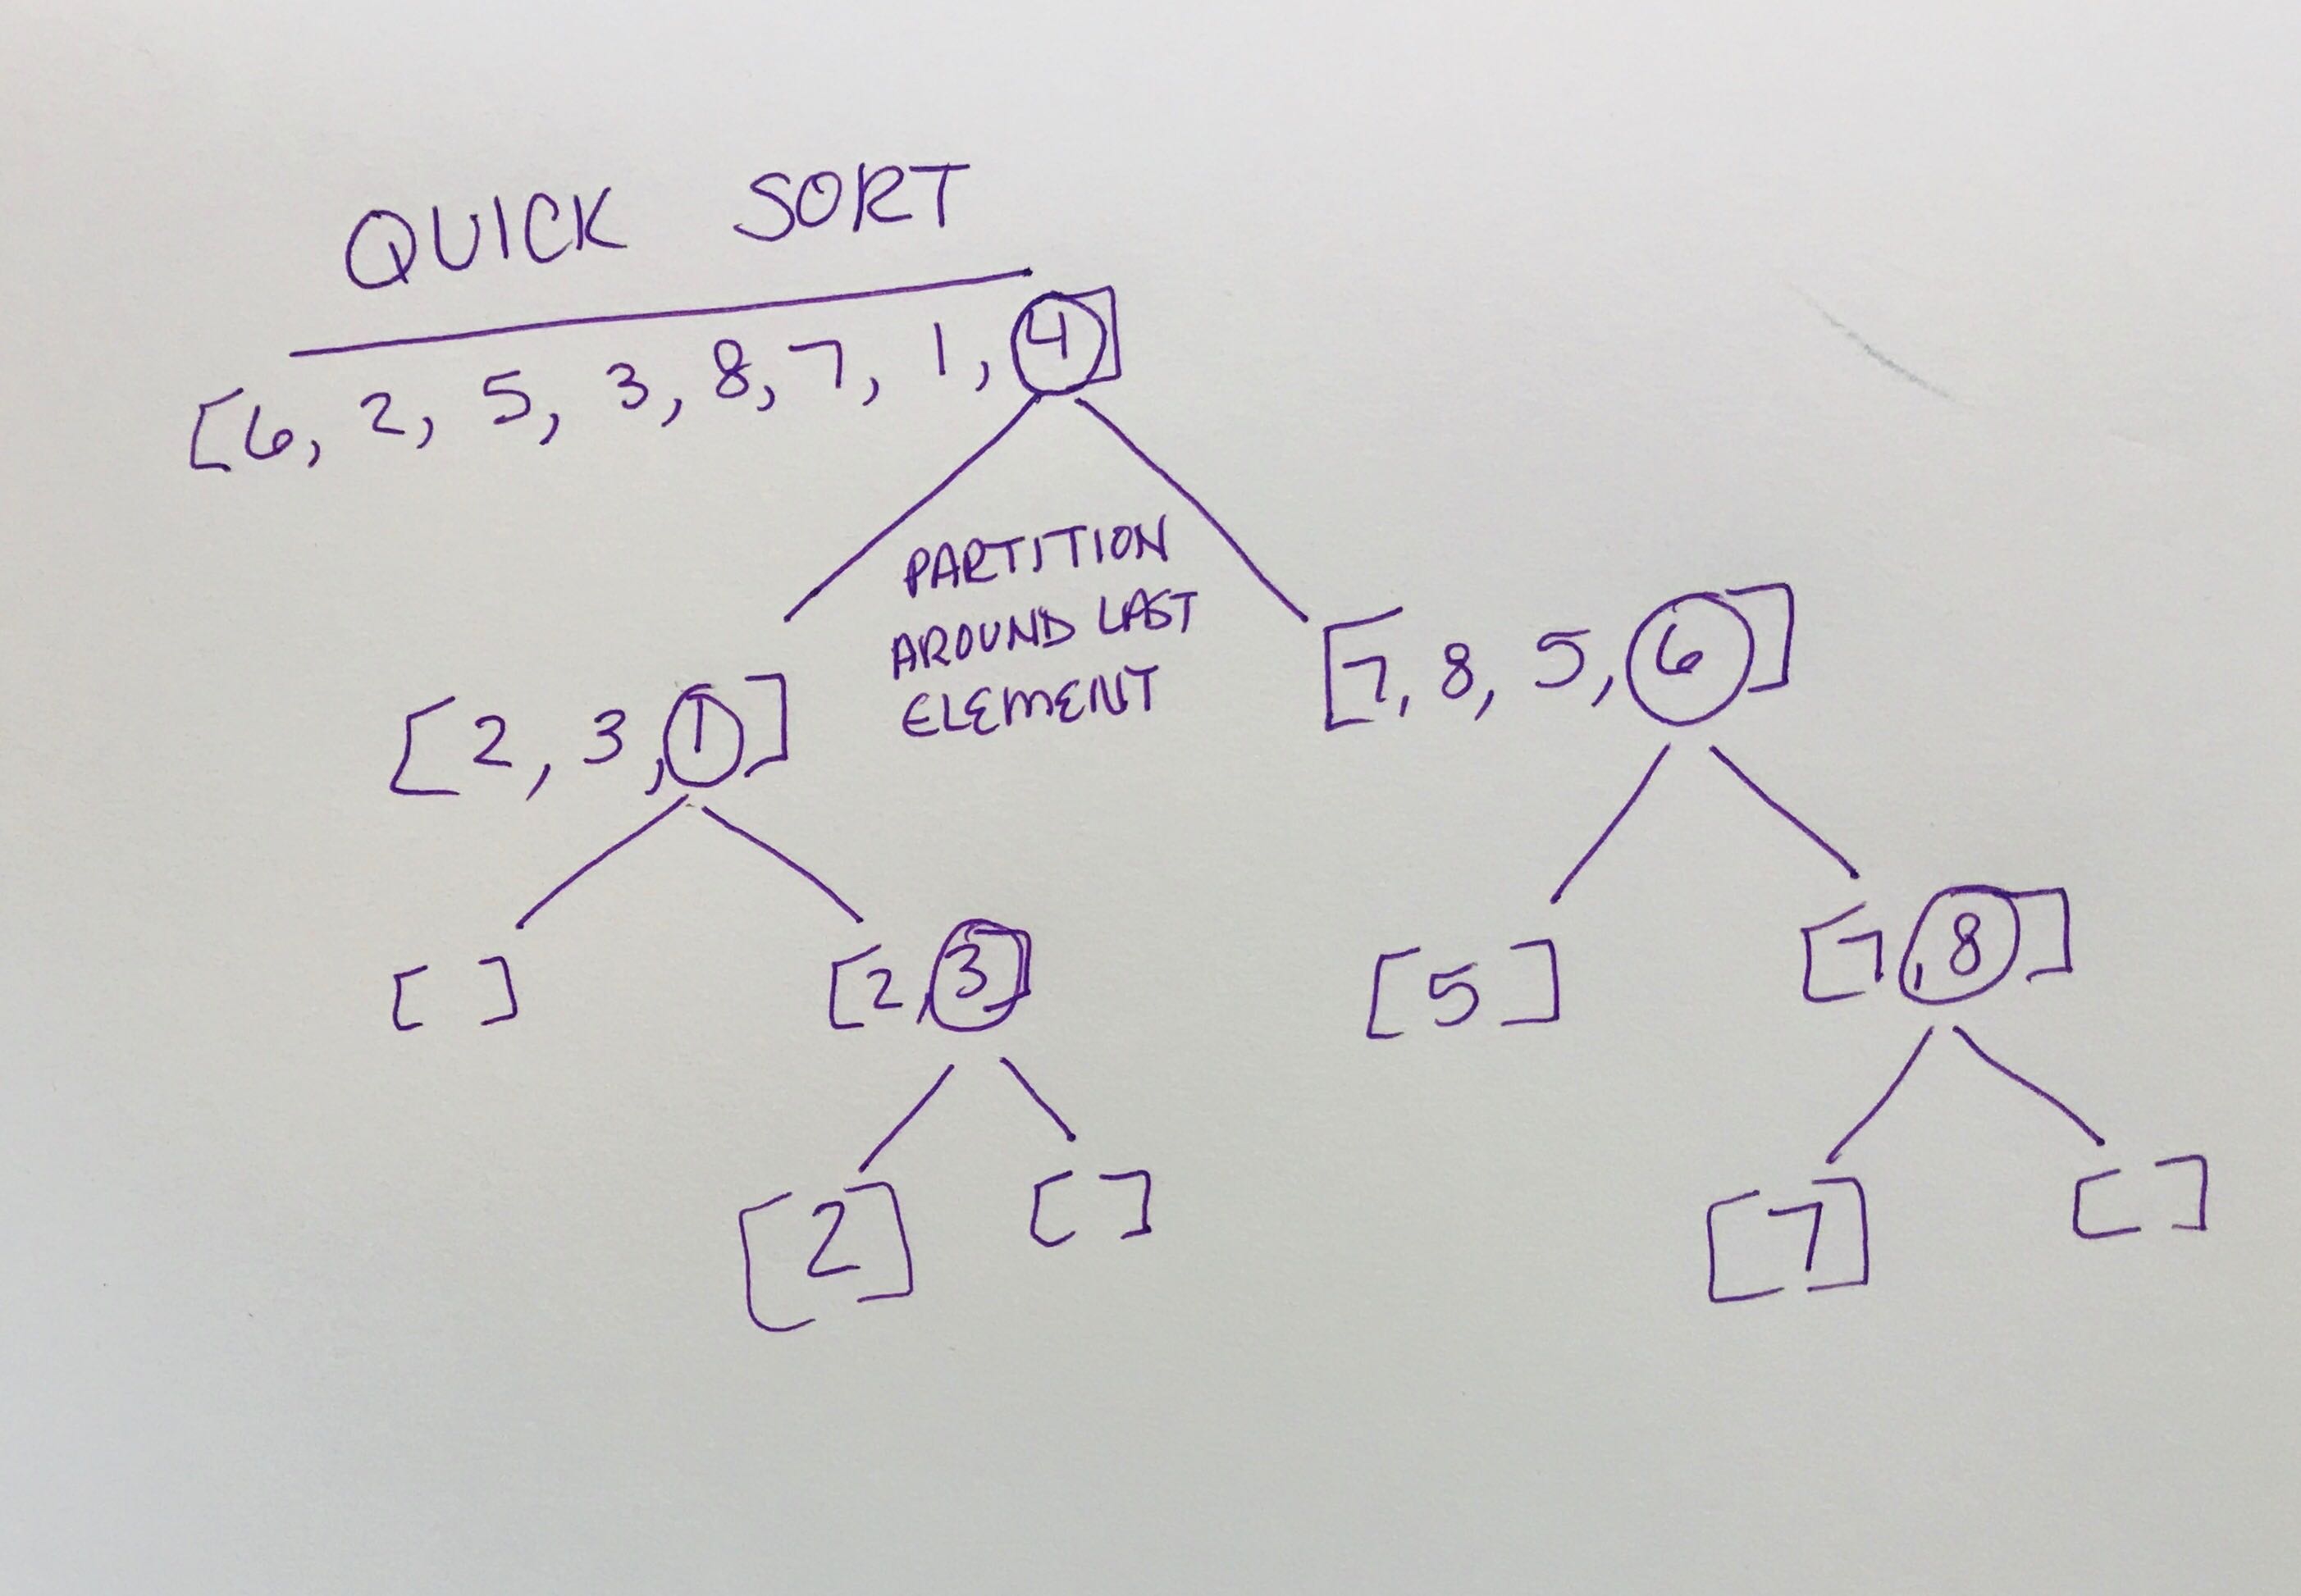 QUICK SORT
[6, 2, 5, 3, 8, 7, 1, 4]
PARTITION
AROUND LAST
ELEMENT
[2, 3, 1]
[7, 8, 5, 6]
[ ]
[2, 3]
[5]
[7, 8]
[2]
[ ]
[7]
[ ]